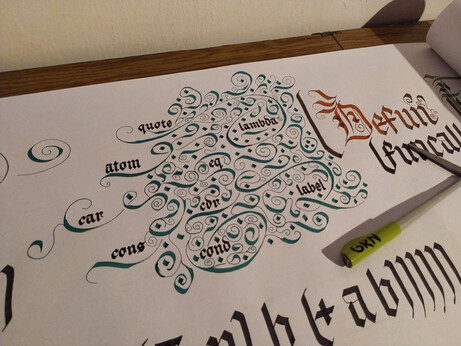 quote
lambda
atom
eq
label
car
cdr
cons
cond
Defun
funcall
GRN